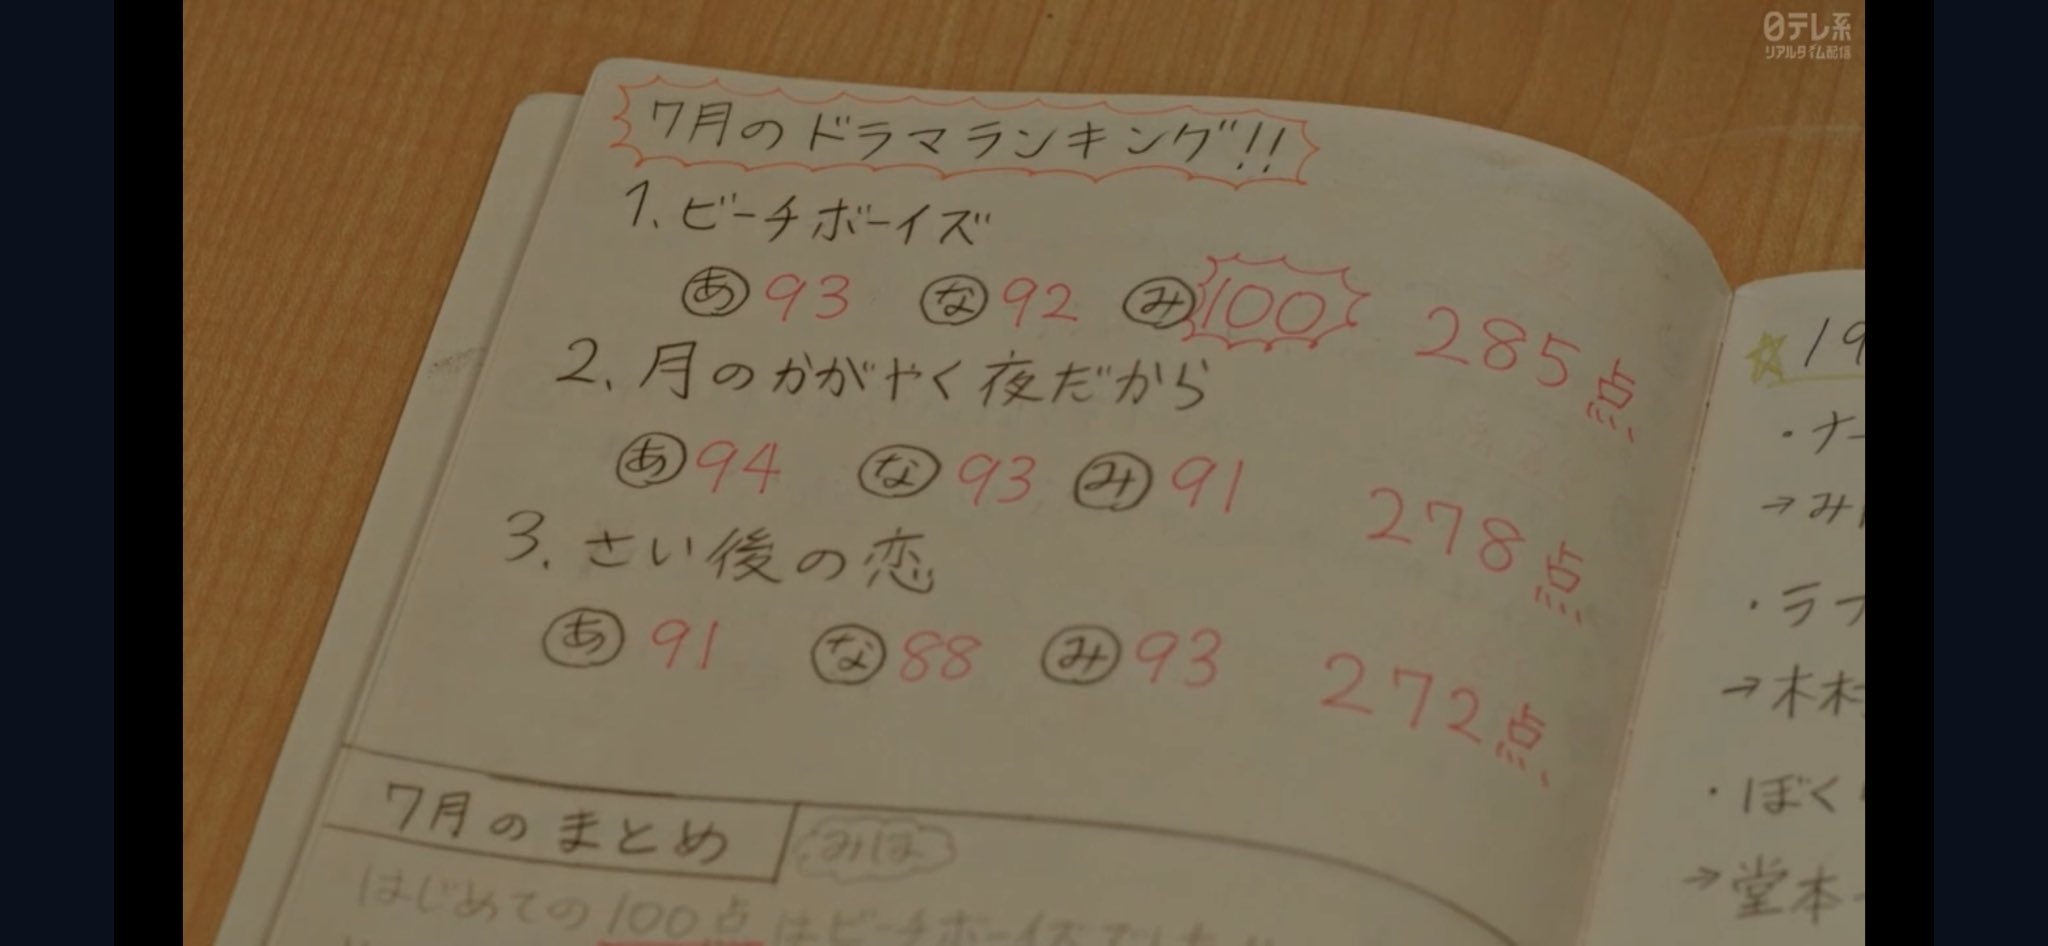 日テレ系
リアルタイム配信
7月のドラマランキング!!
1. ビーチボーイズ
あ 93 な 92 み 100 285点
2. 月のかがやく夜だから
あ 94 な 93 み 91 278点
3. さい後の恋
あ 91 な 88 み 93 272点
7月のまとめ みほ
はじめての100点はビーチボーイズでした
☆19
・ナー
→み
・ラブ
→木村
・ぼく
→堂本